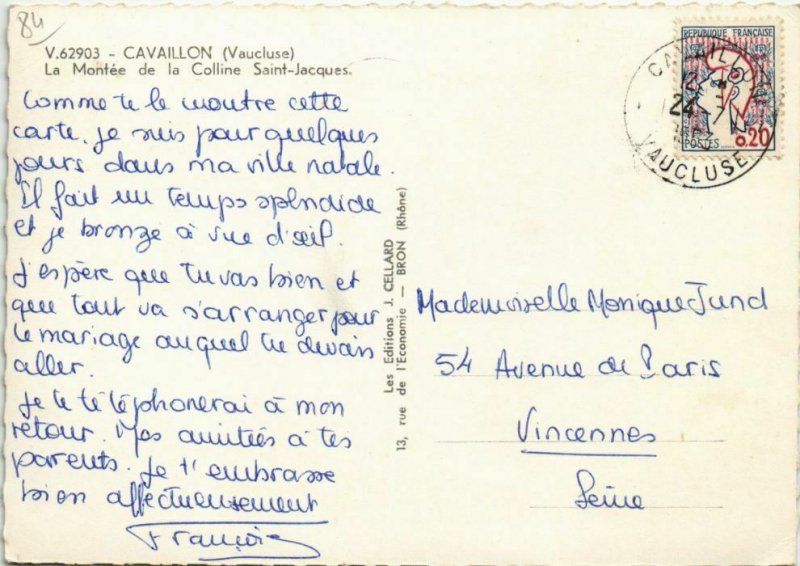 84
V.62903 - CAVAILLON (Vaucluse)
La Montée de la Colline Saint-Jacques.
Comme te le montre cette
carte, je suis pour quelques
jours dans ma ville natale.
Il fait un temps splendide
et je bronze à vue d'œil.
J'espère que tu vas bien et
que tout va s'arranger pour
le mariage auquel tu devais
aller.
Je te téléphonerai à mon
retour. Mes amitiés à tes
parents. Je t'embrasse
bien affectueusement
Les Editions J. CELLARD
13, rue de l'Economie — BRON (Rhône)
REPUBLIQUE FRANÇAISE
POSTES
0.20
CAVAILLON
24-7
VAUCLUSE
Mademoiselle Monique Jund
54 Avenue de Paris
Vincennes
Seine